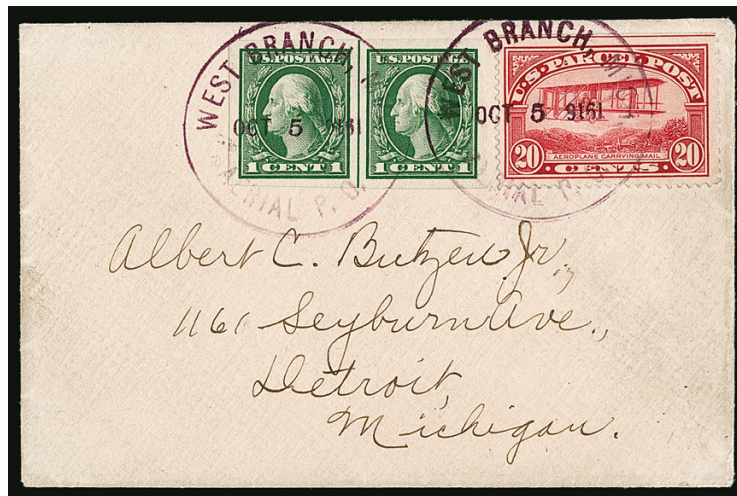 WEST BRANCH, M
OCT 5 1916
AERIAL P. O.
U.S. POSTAGE
1 CENT 1
U.S. POSTAGE
1 CENT 1
WEST BRANCH, MICH
OCT 5 1916
AERIAL P.
U.S. PARCEL POST
AEROPLANE CARRYING MAIL
20 CENTS. 20
Albert C. Butzen Jr.,
1161 Seyburn Ave.,
Detroit,
Michigan.